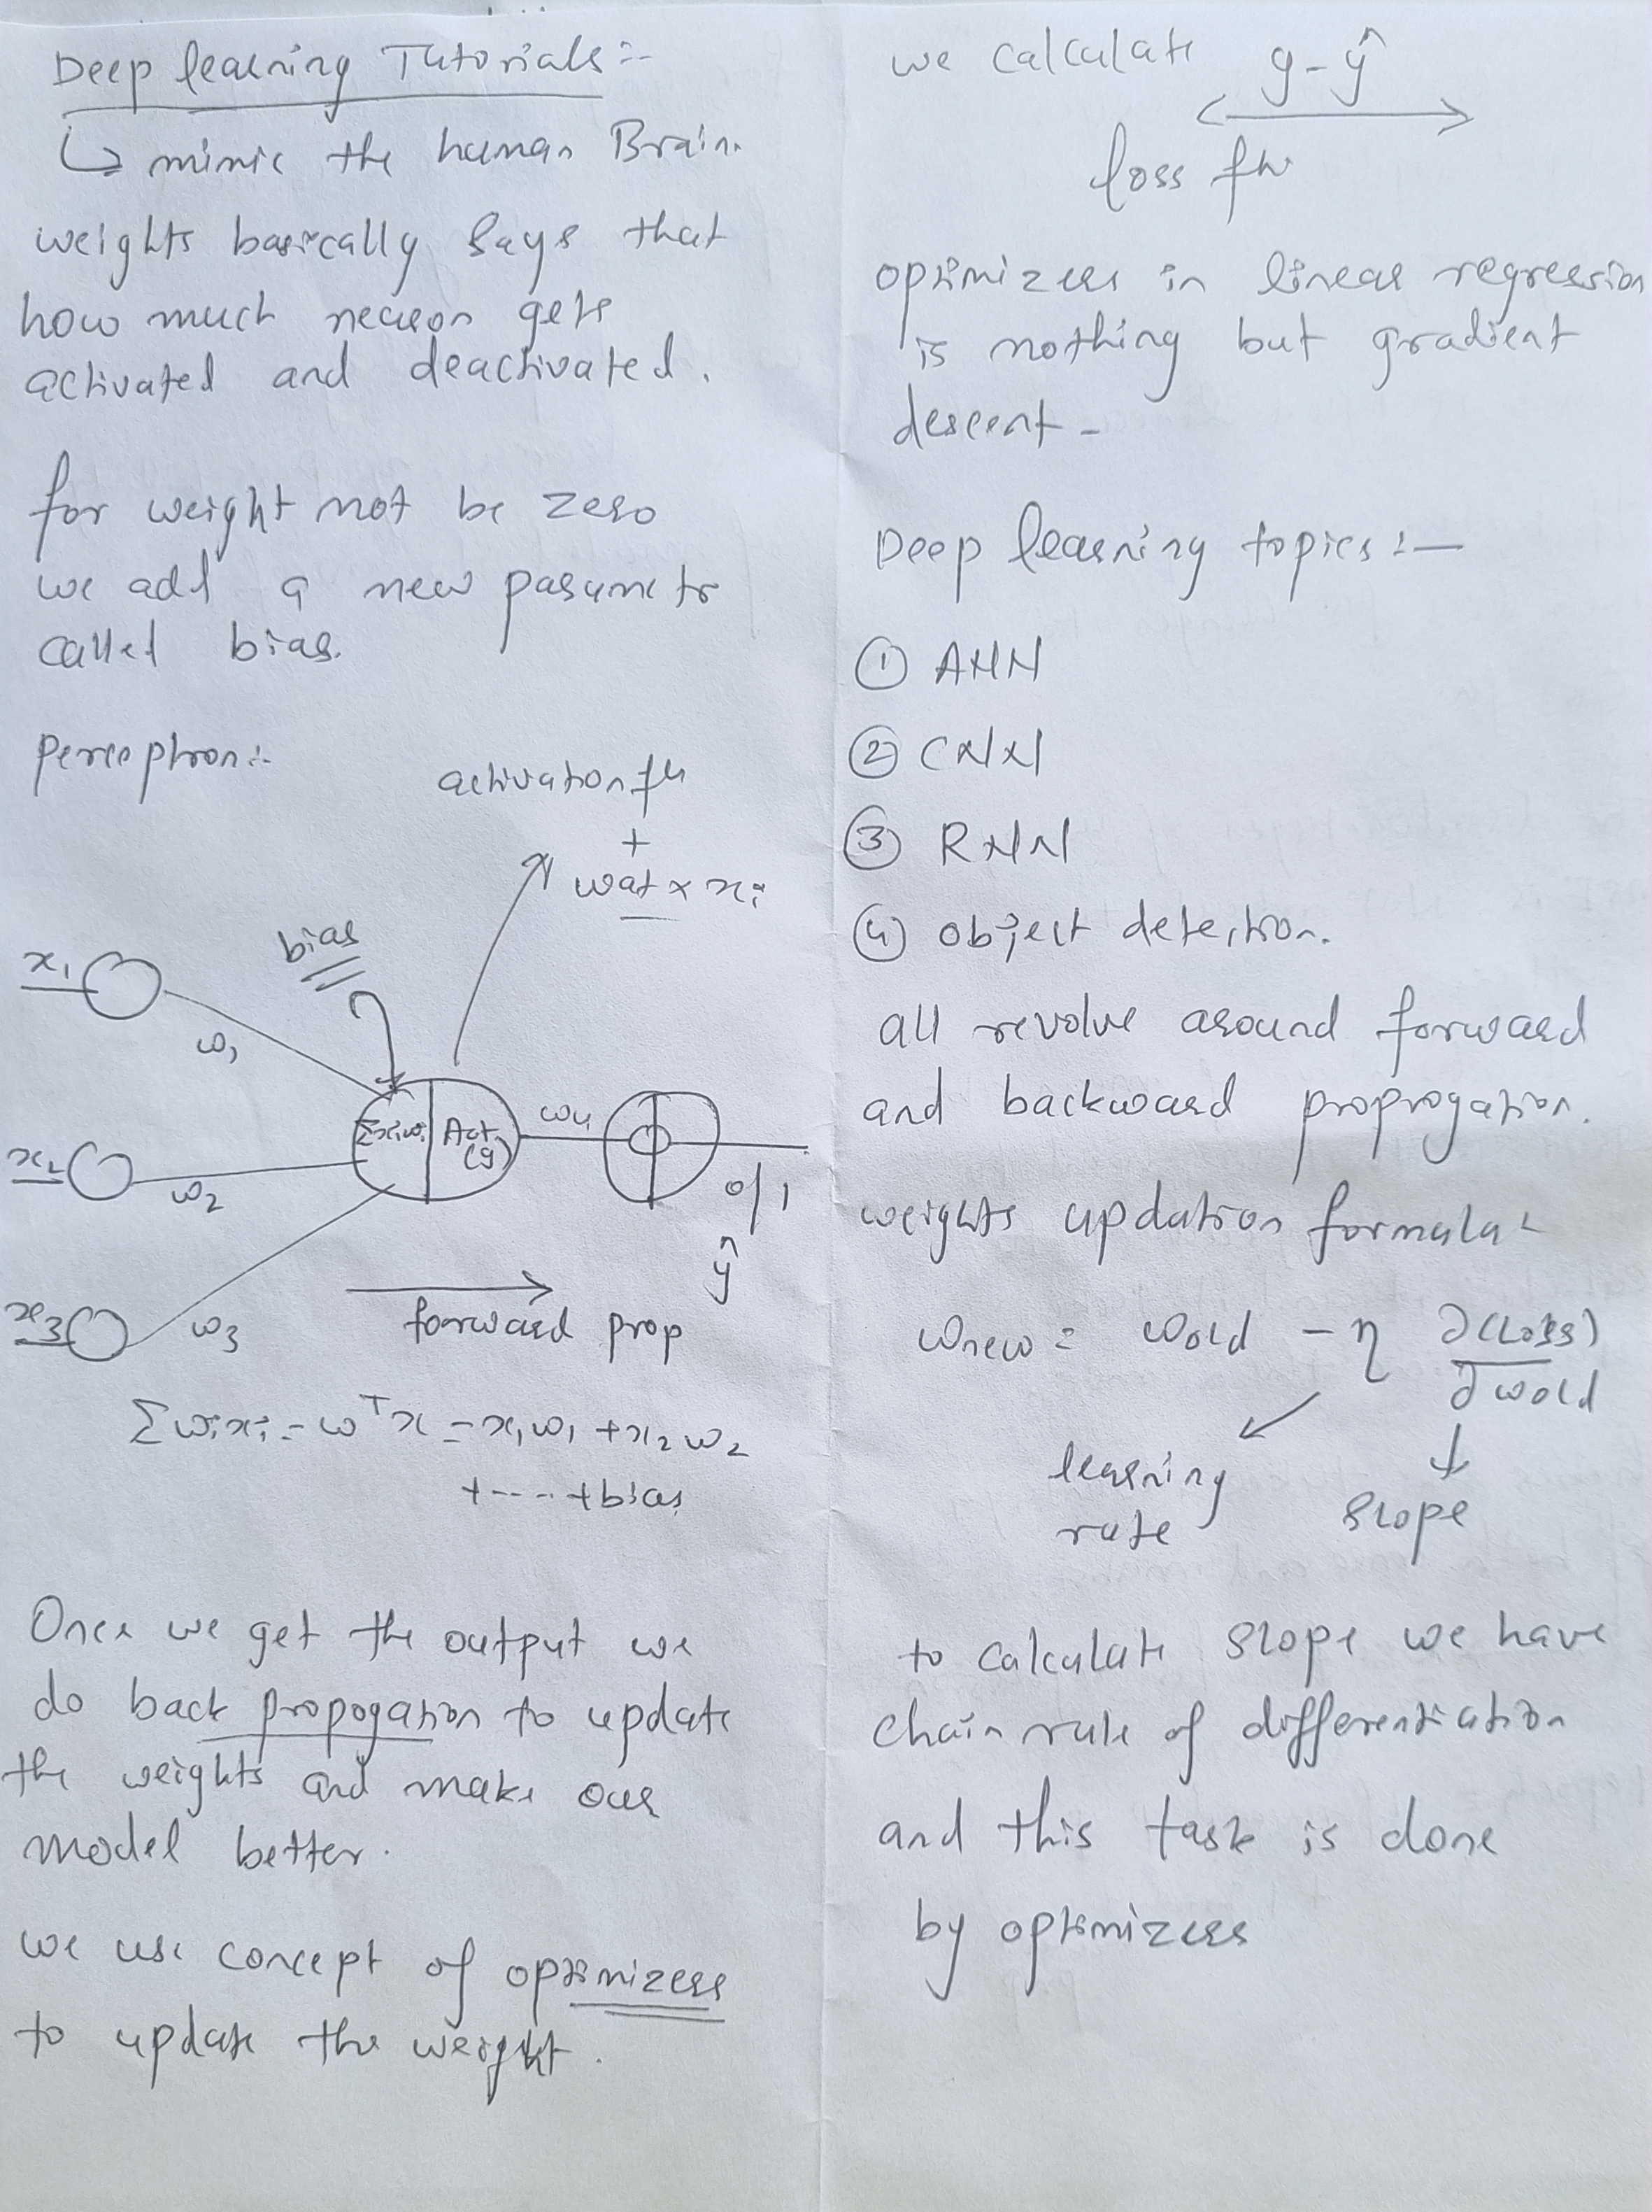 Deep learning Tutorials :-
↳ mimic the human Brain.
weights basically says that
how much neuron gets
activated and deactivated.
for weight not be zero
we add a new parametr
called bias.
perceptron :-
activation fn
+
wat x xi
bias
x1
w1
x2
w2
x3
w3
Σxiwi
Act
(g)
w4
0/1
ŷ
forward prop
Σwixi = wᵀx = x1w1 + x2w2
+ ---- + bias
Once we get the output we
do back propogation to update
the weights and make our
model better.
we use concept of optimizers
to update the weight.
we calculate y - ŷ
loss fn
optimizers in linear regression
is nothing but gradient
descent -
Deep learning topics :-
① ANN
② CNN
③ RNN
④ object detection.
all revolve around forward
and backward proprogation.
weights updation formula :
wnew = wold - η ∂(Loss)
∂wold
learning
rate
slope
to calculate slope we have
chain rule of differentiation
and this task is done
by optimizers